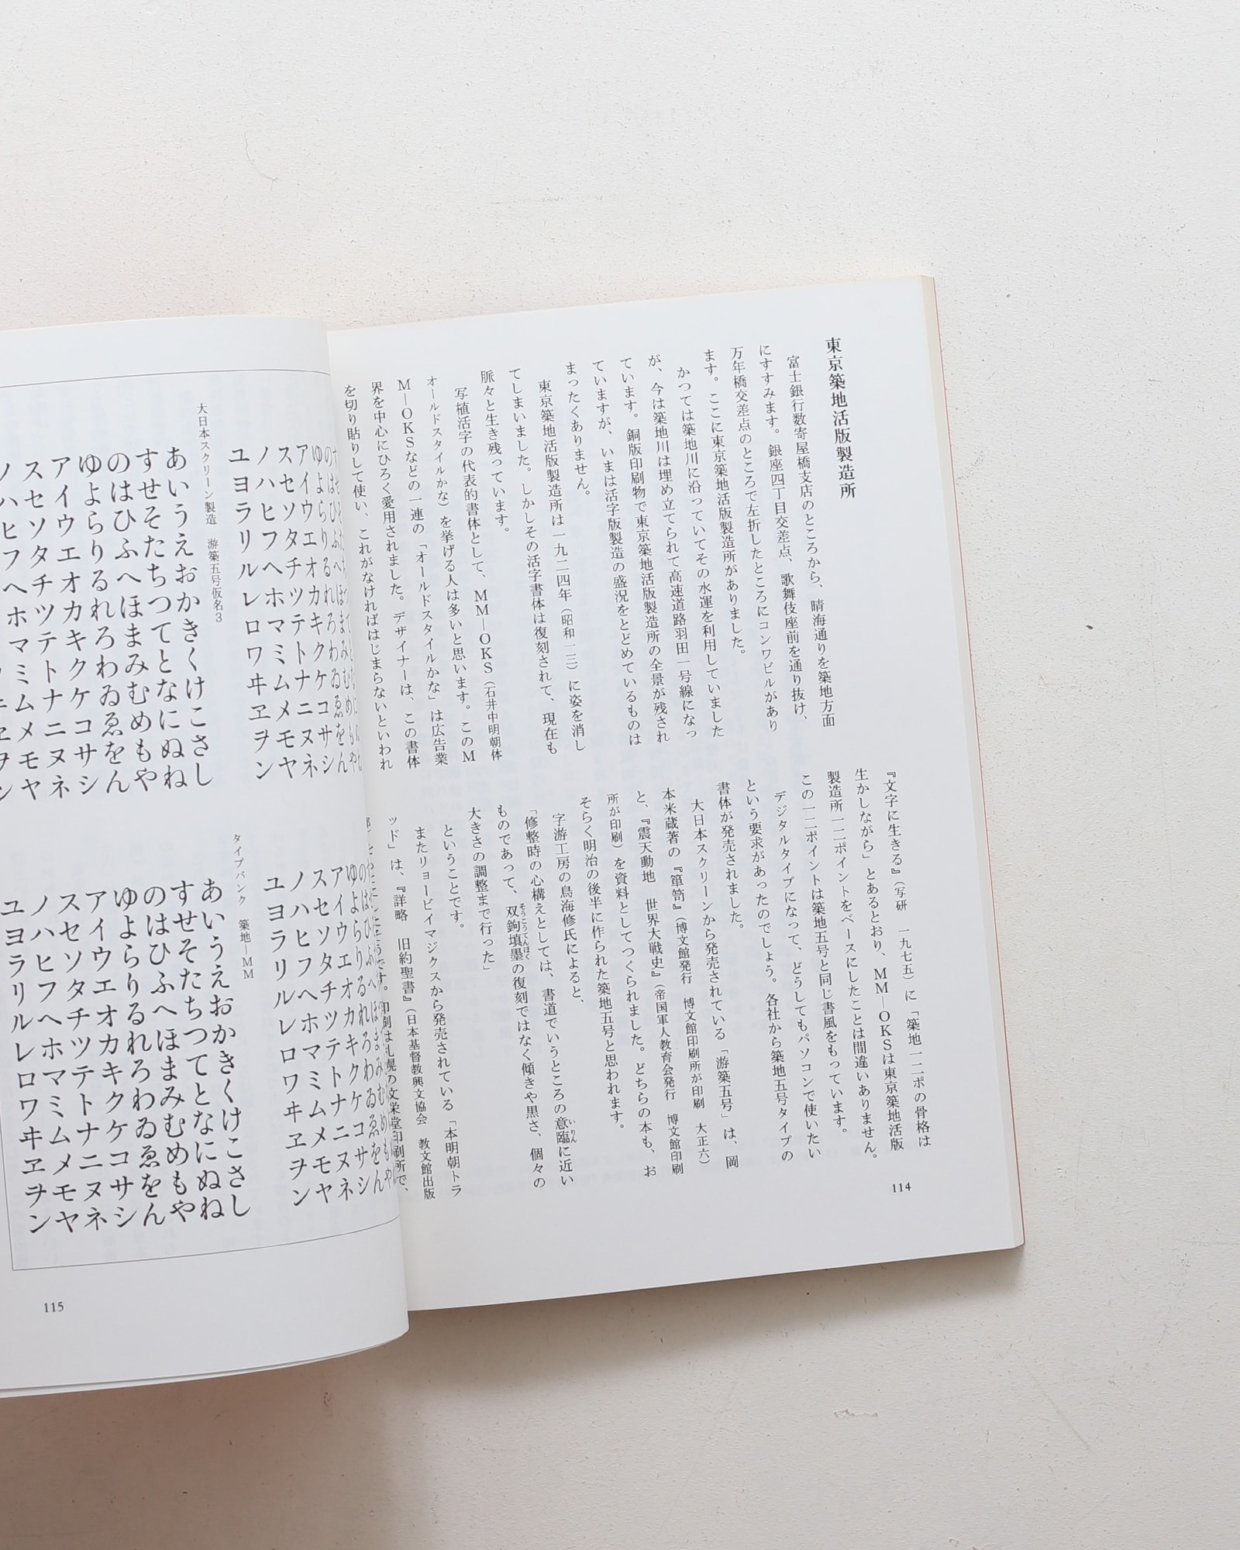 東京築地活版製造所
富士銀行数寄屋橋支店のところから、晴海通りを築地方面
にすすみます。銀座四丁目交差点、歌舞伎座前を通り抜け、
万年橋交差点のところで左折したところにコンワビルがあり
ます。ここに東京築地活版製造所がありました。
かつては築地川に沿っていてその水運を利用していました
が、今は築地川は埋め立てられて高速道路羽田一号線になっ
ています。銅版印刷物で東京築地活版製造所の全景が残され
ていますが、いまは活字版製造の盛況をとどめているものは
まったくありません。
東京築地活版製造所は一九二四年（昭和一三）に姿を消し
てしまいました。しかしその活字書体は復刻されて、現在も
脈々と生き残っています。
写植活字の代表的書体として、MM—OKS（石井中明朝体
オールドスタイルかな）を挙げる人は多いと思います。このM
M—OKSなどの一連の「オールドスタイルかな」は広告業
界を中心にひろく愛用されました。デザイナーは、この書体
を切り貼りして使い、これがなければはじまらないといわれ
『文字に生きる』（写研　一九七五）に「築地一二ポの骨格は
生かしながら」とあるとおり、MM—OKSは東京築地活版
製造所一二ポイントをベースにしたことは間違いありません。
この一二ポイントは築地五号と同じ書風をもっています。
デジタルタイプになって、どうしてもパソコンで使いたい
という要求があったのでしょう。各社から築地五号タイプの
書体が発売されました。
大日本スクリーンから発売されている「游築五号」は、岡
本米蔵著の『箪笥』（博文館発行　博文館印刷所が印刷　大正六）
と、『震天動地　世界大戦史』（帝国軍人教育会発行　博文館印刷
所が印刷）を資料としてつくられました。どちらの本も、お
そらく明治の後半に作られた築地五号と思われます。
字游工房の鳥海修氏によると、
「修整時の心構えとしては、書道でいうところの意臨に近い
ものであって、双鉤填墨の復刻ではなく傾きや黒さ、個々の
大きさの調整まで行った」
ということです。
またリョービイマジクスから発売されている「本明朝トラ
ッド」は、『詳略　旧約聖書』（日本基督教興文協会　教文館出版
です。印刷は札幌の文栄堂印刷所で、
114
ユヨラリルレロワヰヱヲン
ノハヒフヘホマミムメモヤ
スセソタチツテトナニヌネ
アイウエオカキクケコサシ
ゆよらりるれろわゐゑをん
大日本スクリーン製造　游築五号仮名3
あいうえおかきくけこさし
すせそたちつてとなにぬね
のはひふへほまみむめもや
ゆよらりるれろわゐゑをん
アイウエオカキクケコサシ
スセソタチツテトナニヌネ
ユヨラリルレロワヰヱヲン
ノハヒフヘホマミムメモヤ
スセソタチツテトナニヌネ
アイウエオカキクケコサシ
ゆよらりるれろわゐゑをん
タイプバンク　築地—MM
あいうえおかきくけこさし
すせそたちつてとなにぬね
のはひふへほまみむめもや
ゆよらりるれろわゐゑをん
アイウエオカキクケコサシ
スセソタチツテトナニヌネ
ノハヒフヘホマミムメモヤ
ユヨラリルレロワヰヱヲン
115